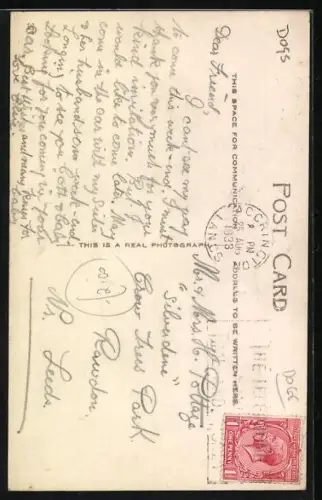 Dogs
POST CARD
THIS SPACE FOR COMMUNICATION ADDRESS TO BE WRITTEN HERE
THIS IS A REAL PHOTOGRAPH
ACCRINGTON
LANCS
1933
THE
Dear Friend,
I can't see my way
to come this week-end. I must
thank you very much for your
kind invitation, but I
would like to come later. May
come in the car with my sister
& her husband some week-end
Longing to see you both & baby
Looking for you coming in your
car. Best wishes and many kisses for baby
Love
Mr & Mrs H. Pottage
"Silverdene"
Crow Trees Park
Rawdon
Nr. Leeds.
DOGS
ONE PENNY